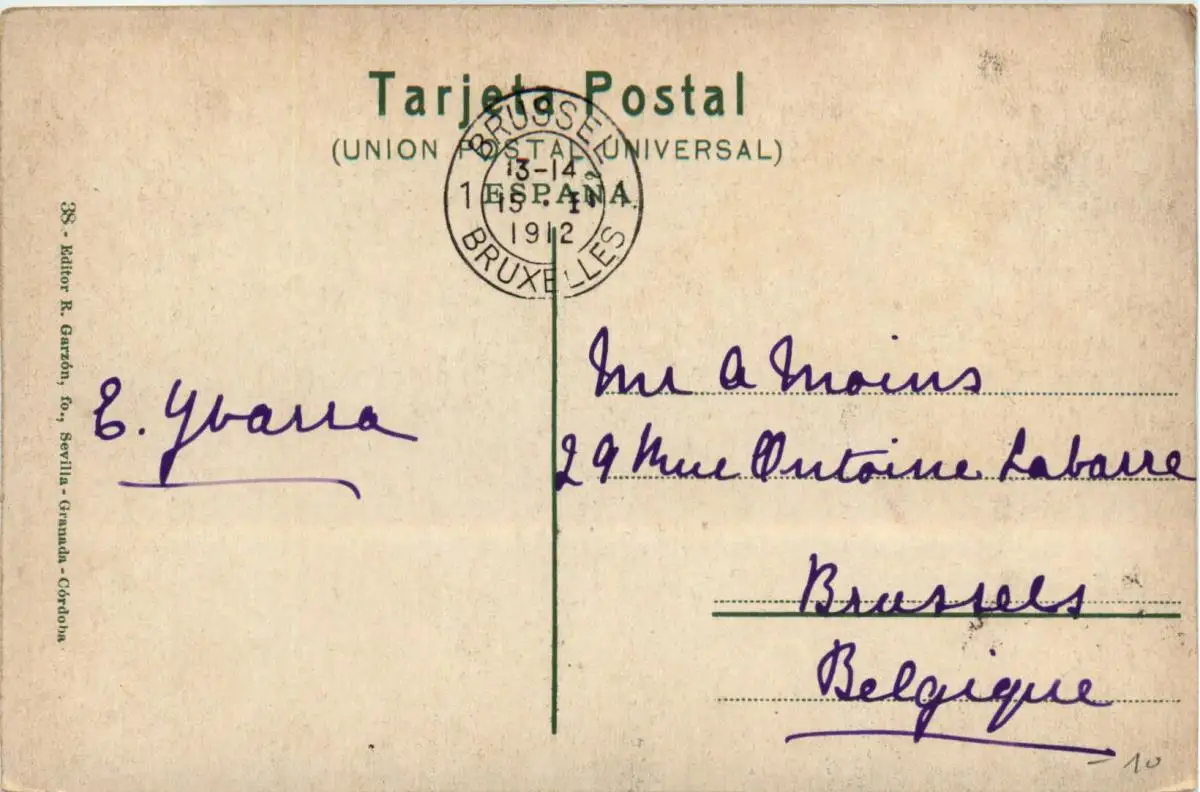 Tarjeta Postal
(UNION POSTAL UNIVERSAL)
ESPAÑA
BRUSSEL
13-14
1 15 · I 1
1912
BRUXELLES
38.- Editor R. Garzón, fo., Sevilla - Granada - Córdoba
E. Ybarra
Mr A Moins
29 Rue Antoine Labarre
Brussels
Belgique
- 10